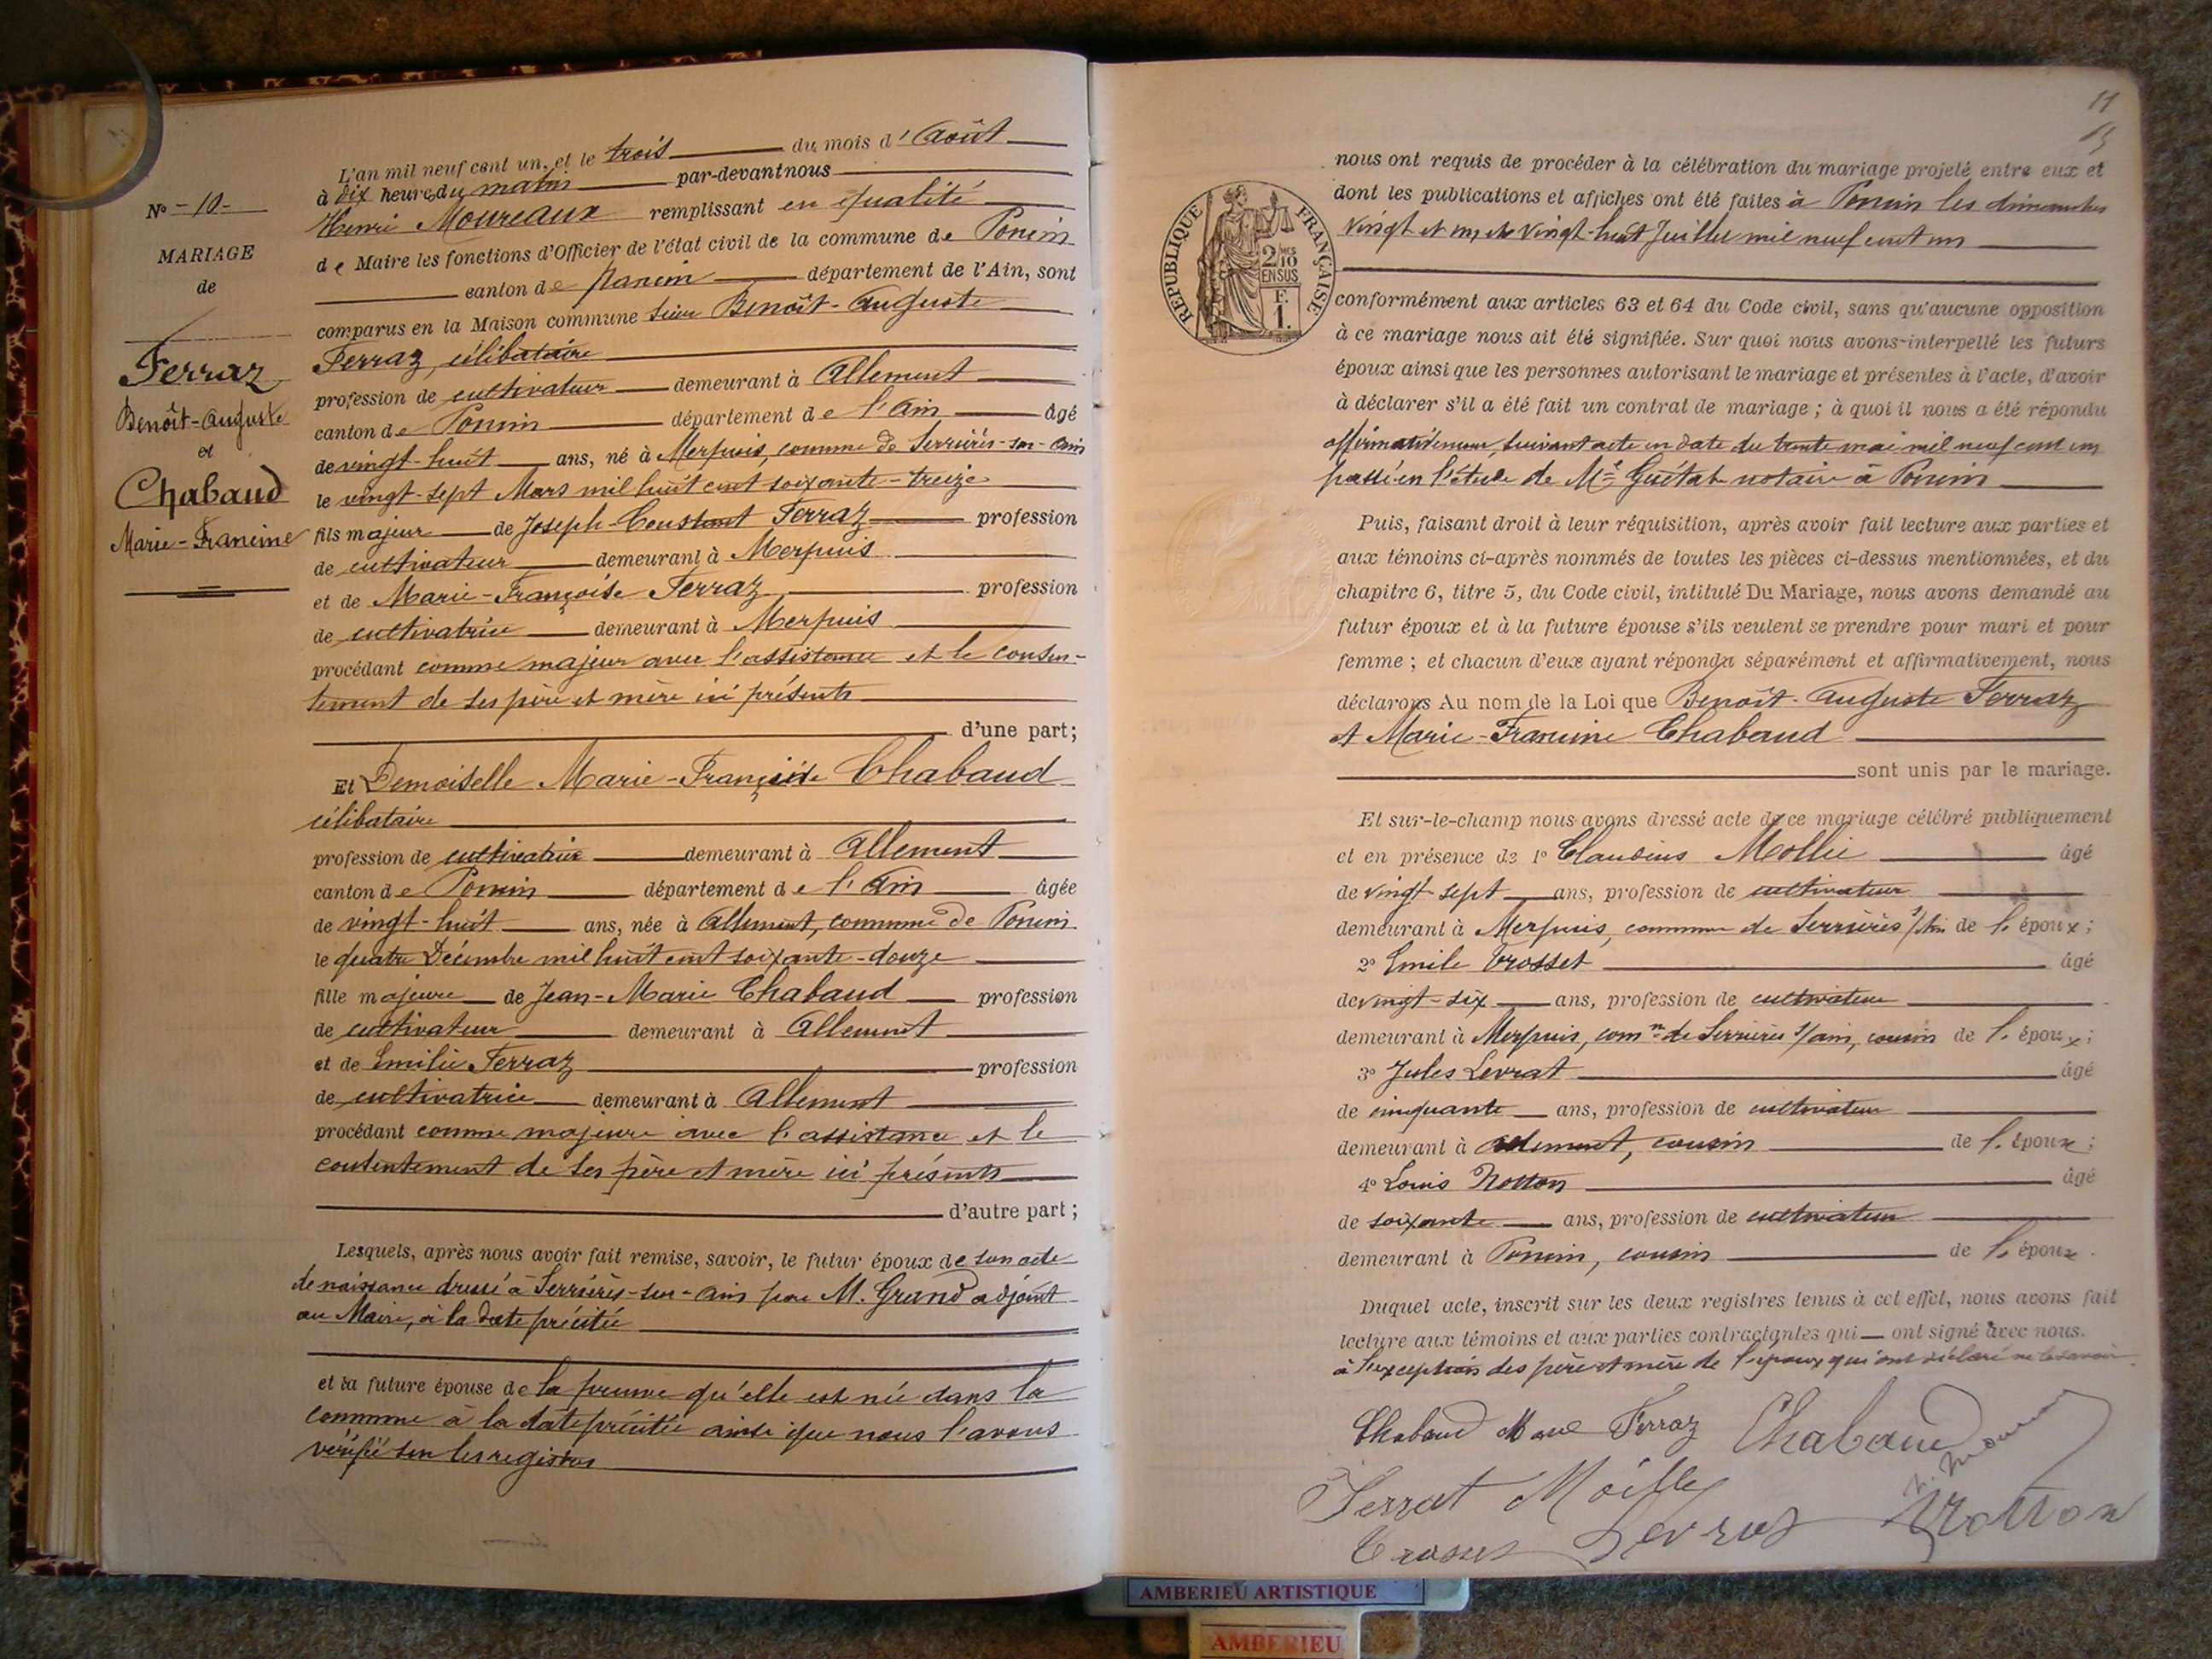 N° - 10 -
MARIAGE
de
Ferraz
Benoît-Auguste
et
Chabaud
Marie-Francine
L'an mil neuf cent un, et le trois du mois d'Août
à dix heures du matin par-devant nous
Henri Moureaux remplissant en qualité
de Maire les fonctions d'Officier de l'état civil de la commune de Poncin
canton de Poncin département de l'Ain, sont
comparus en la Maison commune sieur Benoît-Auguste
Ferraz, célibataire
profession de cultivateur demeurant à Allement
canton de Poncin département de l'Ain âgé
de vingt-huit ans, né à Merpuis, commune de Serrières-sur-Ain
le vingt-sept Mars mil huit cent soixante-treize
fils majeur de Joseph-Constant Ferraz profession
de cultivateur demeurant à Merpuis
et de Marie-Françoise Ferraz profession
de cultivatrice demeurant à Merpuis
procédant comme majeur avec l'assistance et le consen-
tement de ses père et mère ici présents
d'une part;
Et Demoiselle Marie-Chabaud
célibataire
profession de cultivatrice demeurant à Allement
canton de Poncin département de l'Ain âgée
de vingt-huit ans, née à Allement, commune de Poncin
le quatre Décembre mil huit cent soixante-douze
fille majeure de Jean-Marie Chabaud profession
de cultivateur demeurant à Allement
et de Emilie Ferraz profession
de cultivatrice demeurant à Allement
procédant comme majeure avec l'assistance et le
consentement de ses père et mère ici présents
d'autre part;
Lesquels, après nous avoir fait remise, savoir, le futur époux de son acte
de naissance dressé à Serrières-sur-Ain par M. Grand adjoint
au Maire, à la date précitée
et la future épouse de la preuve qu'elle est née dans la
commune à la date précitée ainsi que nous l'avons
vérifié sur les registres
11
REPUBLIQUE FRANÇAISE
2/10
EN SUS
F.
1.
nous ont requis de procéder à la célébration du mariage projeté entre eux et
dont les publications et affiches ont été faites à Poncin les dimanches
vingt et un et vingt-huit Juillet mil neuf cent un
conformément aux articles 63 et 64 du Code civil, sans qu'aucune opposition
à ce mariage nous ait été signifiée. Sur quoi nous avons interpellé les futurs
époux ainsi que les personnes autorisant le mariage et présentes à l'acte, d'avoir
à déclarer s'il a été fait un contrat de mariage ; à quoi il nous a été répondu
affirmativement, suivant acte en date du trente mai mil neuf cent un
passé en l'étude de Me Guétat notaire à Poncin
Puis, faisant droit à leur réquisition, après avoir fait lecture aux parties et
aux témoins ci-après nommés de toutes les pièces ci-dessus mentionnées, et du
chapitre 6, titre 5, du Code civil, intitulé Du Mariage, nous avons demandé au
futur époux et à la future épouse s'ils veulent se prendre pour mari et pour
femme ; et chacun d'eux ayant répondu séparément et affirmativement, nous
déclarons Au nom de la Loi que Benoît-Auguste Ferraz
et Marie-Francine Chabaud
sont unis par le mariage.
Et sur-le-champ nous avons dressé acte de ce mariage célébré publiquement
et en présence de 1° Claudius Mollie âgé
de vingt-sept ans, profession de cultivateur
demeurant à Merpuis, commune de Serrières s/Ain de l'époux;
2° Emile Trosset âgé
de vingt-six ans, profession de cultivateur
demeurant à Merpuis, comm^ne de Serrières s/ain, cousin de l'époux;
3° Jules Levrat âgé
de cinquante ans, profession de cultivateur
demeurant à Allement, cousin de l'époux;
4° Louis Notton âgé
de soixante ans, profession de cultivateur
demeurant à Poncin, cousin de l'époux.
Duquel acte, inscrit sur les deux registres tenus à cet effet, nous avons fait
lecture aux témoins et aux parties contractantes qui ont signé avec nous.
à l'exception des père et mère de l'époux qui ont déclaré ne le savoir.
Chabaud Marie Ferraz Chabaud
Levrat Notton
AMBERIEU ARTISTIQUE
AMBERIEU